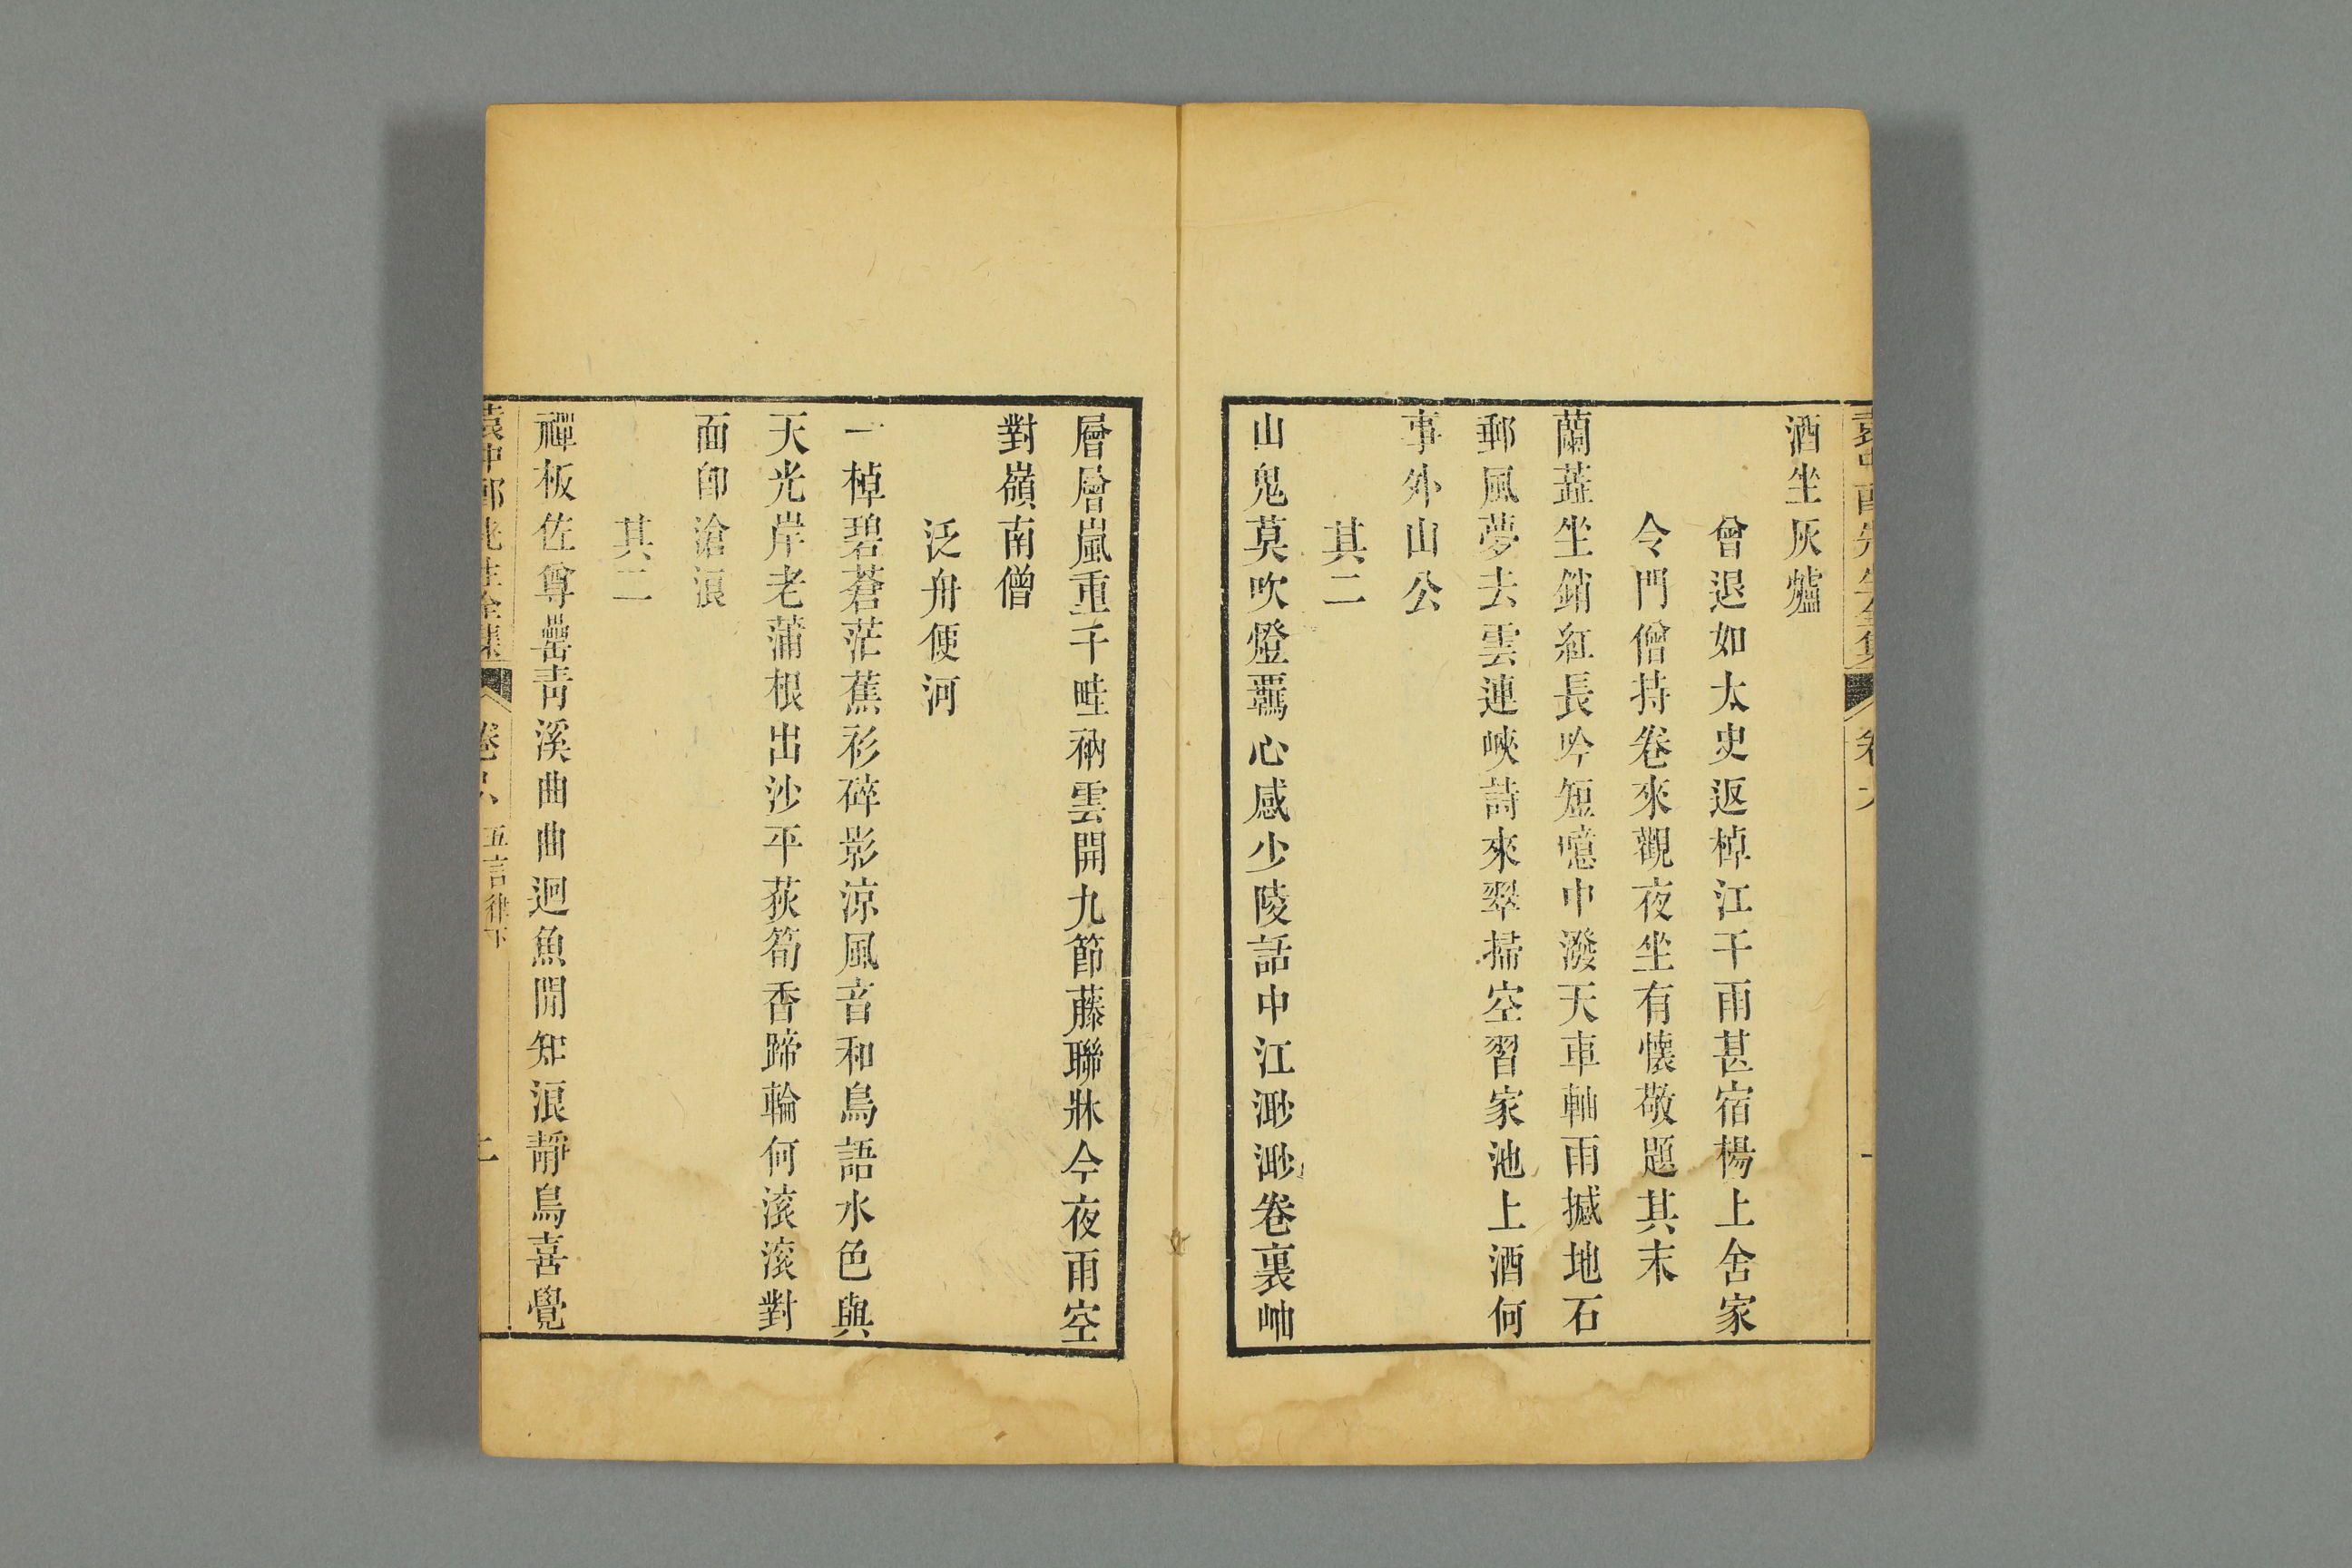 酒坐灰爐
曾退如太史返棹江干雨甚宿楊上舍家
令門僧持卷來觀夜坐有懷敬題其末
蘭蕋坐銷紅長吟短噫中潑天車軸雨撼地石
郵風夢去雲連峽詩來翠掃空習家池上酒何
事外山公
其二
山鬼莫吹燈羈心感少陵話中江渺渺卷裏岫
層層嵐重千畦衲雲開九節藤聯牀今夜雨空
對嶺南僧
泛舟便河
一棹碧蒼茫蕉衫碎影涼風音和鳥語水色與
天光岸老蒲根出沙平荻筍香蹄輪何滾滾對
面卽滄浪
其二
禪板佐尊罍靑溪曲曲迴魚閒知浪靜鳥喜覺
袁中郎先生全集 卷六 五言律下